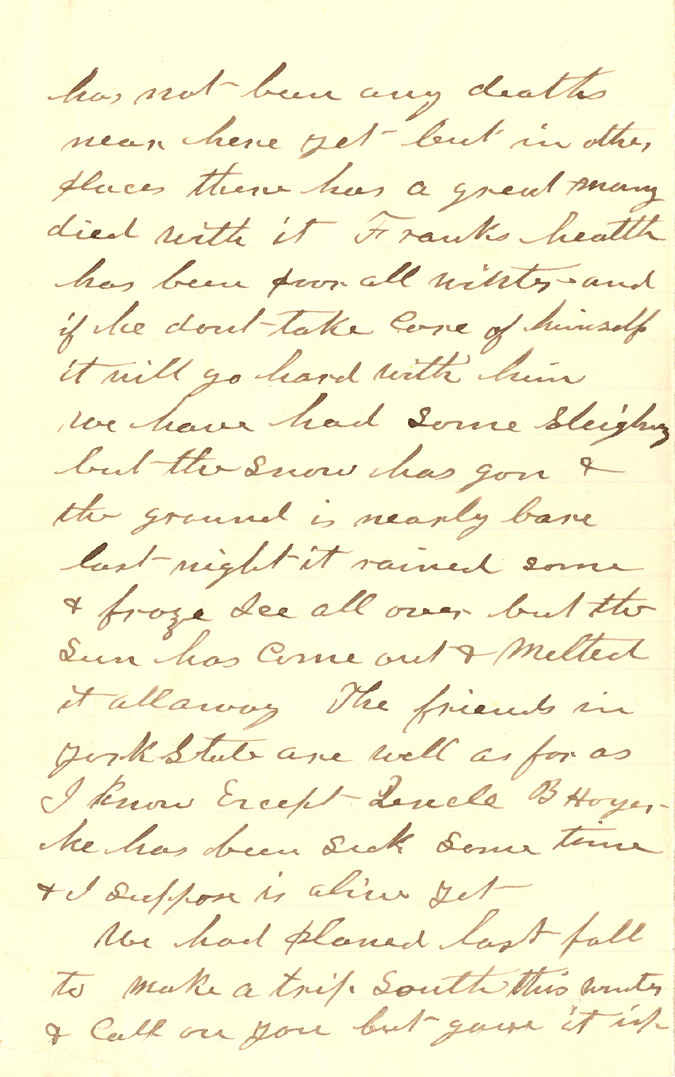 has not been any deaths
near here yet but in other
places there has a great many
died with it Franks health
has been poor all winter and
if he dont take Care of himself
it will go hard with him
we have had Some Sleighing
but the Snow has gon &
the ground is nearly bare
last night it rained some
& froze Ice all over but the
Sun has Come out & Melted
it all away The friends in
York State are well as far as
I know Except Uncle B Hoyer
he has been Sick Some time
& I suppose is alive yet
We had planed last fall
to make a trip South this winter
& Call on you but gave it up